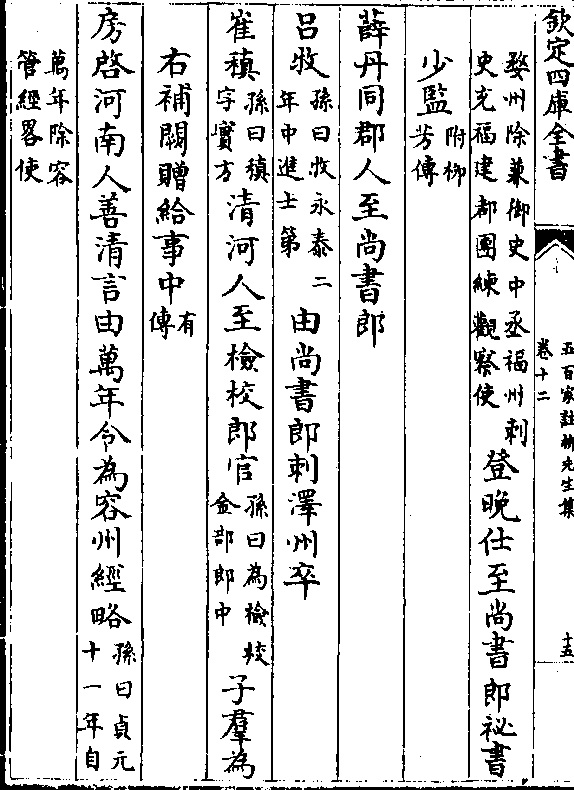 欽定四庫全書
五百家註柳先生集
卷十二
十五
婺州除兼御史中丞福州刺
史充福建都團練觀察使
登晚仕至尚書郎祕書
少監
附柳
芳傳
薛丹同郡人至尚書郎
呂牧
孫曰牧永泰二
年中進士第
由尚書郎刺澤州卒
崔稹
孫曰稹
字實方
清河人至檢校郎官
孫曰為檢校
金部郎中
子羣為
右補闕贈給事中
有
傳
房啓河南人善清言由萬年令為容州經略
孫曰貞元
十一年自
萬年除容
管經畧使